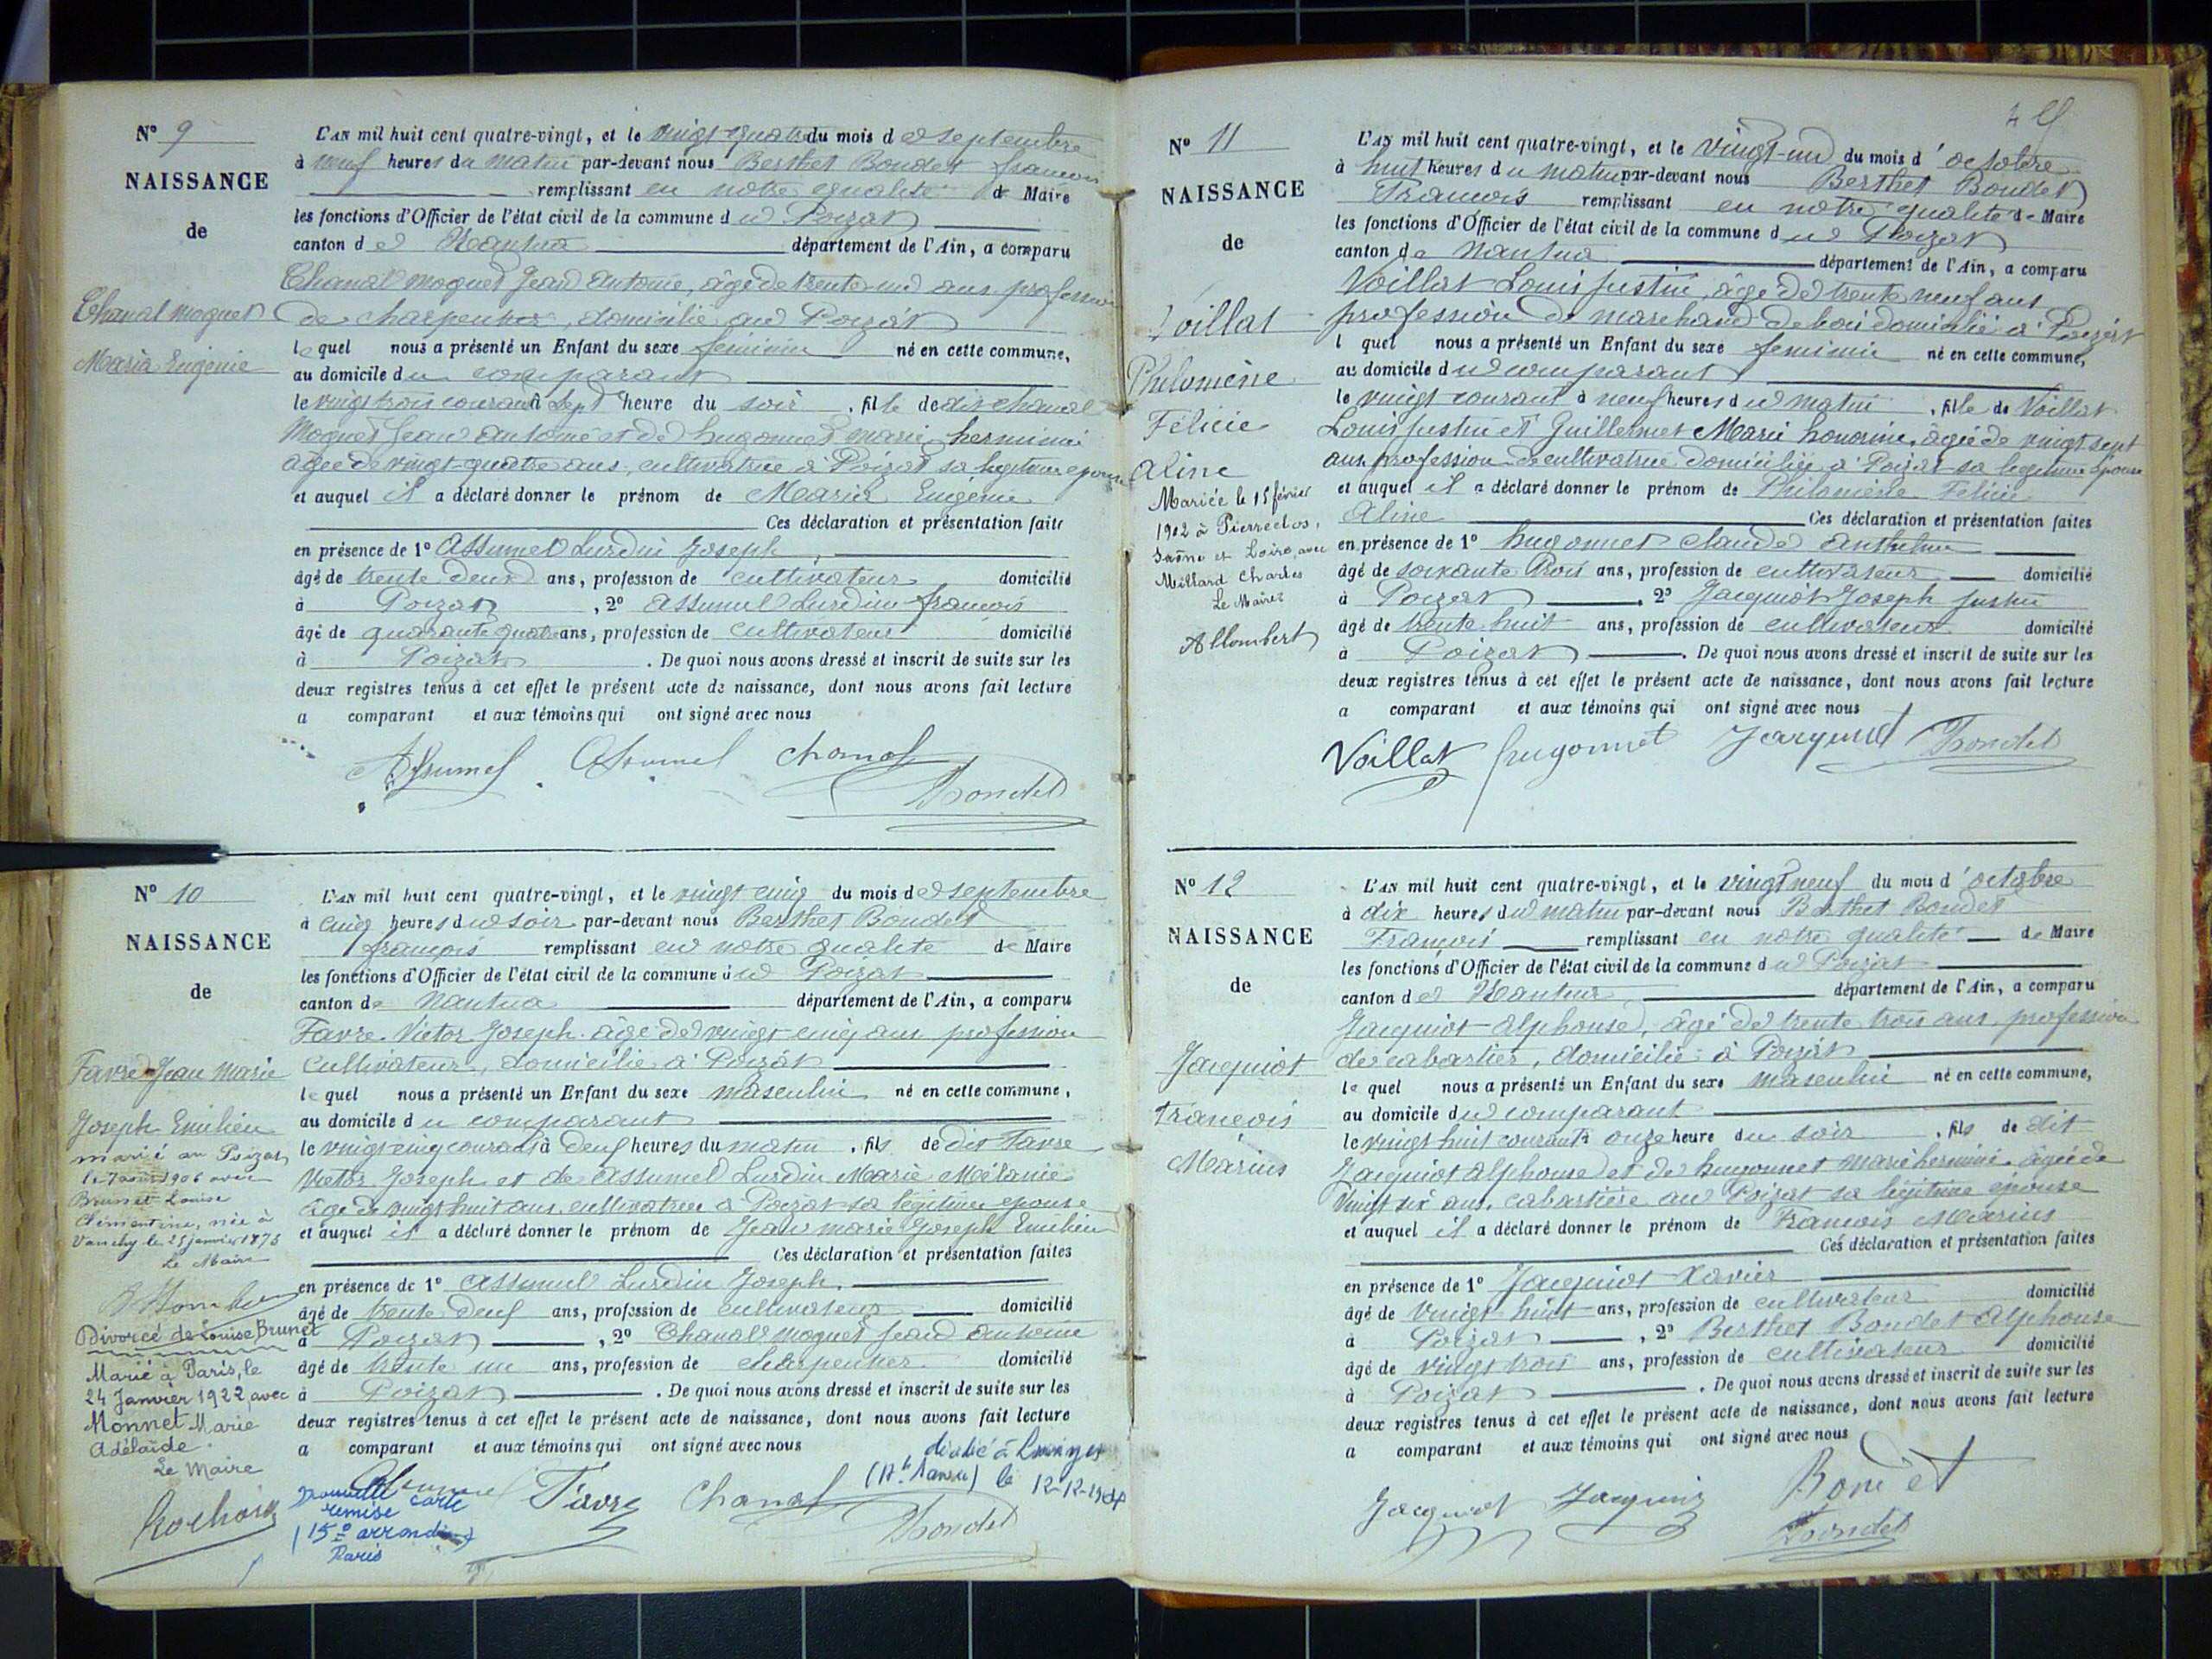 N° 9
NAISSANCE
de
Chanal moguet
Maria Eugénie
L'AN mil huit cent quatre-vingt, et le vingt quatre du mois de septembre
à neuf heures du matin par-devant nous Berthet Bondet francois
remplissant en notre qualité de Maire
les fonctions d'Officier de l'état civil de la commune du Poizat
canton de Nantua département de l'Ain, a comparu
Chanal moguet Jean antoine, âgé de trente un ans profession
de charpentier, domicilié au Poizat
lequel nous a présenté un Enfant du sexe feminin né en cette commune,
au domicile du comparant
le vingt trois courant à sept heure du soir, fille de dit chanal
Moguet Jean antoine et de hugonnet marie herminie
agée de vingt-quatre ans, cultivatrice a Poizat sa legitime epouse
et auquel il a déclaré donner le prénom de Maria Eugénie
Ces déclaration et présentation faite
en présence de 1° Assumel Lurdin Joseph,
âgé de trente deux ans, profession de cultivateur domicilié
à Poizat, 2° assumel Lurdin francois
âgé de quarante quatre ans, profession de cultivateur domicilié
à Poizat. De quoi nous avons dressé et inscrit de suite sur les
deux registres tenus à cet effet le présent acte de naissance, dont nous avons fait lecture
a comparant et aux témoins qui ont signé avec nous
Assumel Assumel chanal
Bondet
N° 10
NAISSANCE
de
Favre Jean Marie
Joseph Emilien
marié au Poizat
le 7 1906 avec
Brunet Louise
Clémentine, née à
Vanchy le 25 janvier 1875
Le Maire
Divorcé de Louise Brunet
Marié à Paris, le
24 Janvier 1922, avec
Monnet Marie
Adélaïde.
Le Maire
L'AN mil huit cent quatre-vingt, et le vingt cinq du mois de septembre
à cinq heures du soir par-devant nous Berthet Bondet
françois remplissant en notre qualité de Maire
les fonctions d'Officier de l'état civil de la commune du Poizat
canton de Nantua département de l'Ain, a comparu
Favre Victor Joseph âgé de vingt cinq ans profession
Cultivateur, domicilié à Poizat
lequel nous a présenté un Enfant du sexe masculin né en cette commune,
au domicile du comparant
le vingt cinq courant à deux heures du matin, fils de dit Favre
Victor Joseph et de Assumel Lurdin Marie Mélanie
âgé de vingt huit ans cultivatrice a Poizat sa légitime epouse
et auquel il a déclaré donner le prénom de Jean marie Joseph Emilien
Ces déclaration et présentation faites
en présence de 1° Assumel Lurdin Joseph.
âgé de trente deux ans, profession de cultivateur domicilié
à Poizat, 2° Chanal moguet Jean antoine
âgé de trente un ans, profession de charpentier domicilié
à Poizat. De quoi nous avons dressé et inscrit de suite sur les
deux registres tenus à cet effet le présent acte de naissance, dont nous avons fait lecture
a comparant et aux témoins qui ont signé avec nous
décédé à
le 12-12-19
Assumel Favre Chanal
Bondet
nouvelle carte
remise
(15e arrondt)
Paris
N° 11
NAISSANCE
de
Voillat
Philomène
Félicie
Aline
Mariée le 15 février
1902 à Pierreclos,
Saône et Loire, avec
Millard Charles
Le Maire
Allombert
L'AN mil huit cent quatre-vingt, et le vingt-un du mois d'octobre
à huit heures du matin par-devant nous Berthet Bondet
Francois remplissant en notre qualité de Maire
les fonctions d'Officier de l'état civil de la commune du Poizat
canton de Nantua département de l'Ain, a comparu
Voillat Louis Justin, âgé de trente neuf ans
profession de marchand de bois domicilié à Poizat
lequel nous a présenté un Enfant du sexe feminin né en cette commune,
au domicile du comparant
le vingt courant à neuf heures du matin, fille de Voillat
Louis Justin et Guillermet Marie honorine, âgée de vingt sept
ans, profession de cultivatrice domiciliée à Poizat sa legitime épouse
et auquel il a déclaré donner le prénom de Philomène Félicie
Aline Ces déclaration et présentation faites
en présence de 1° hugonnet claude anthelme
âgé de soixante trois ans, profession de cultivateur domicilié
à Poizat, 2° Jacquiot Joseph Justin
âgé de trente huit ans, profession de cultivateur domicilié
à Poizat. De quoi nous avons dressé et inscrit de suite sur les
deux registres tenus à cet effet le présent acte de naissance, dont nous avons fait lecture
a comparant et aux témoins qui ont signé avec nous
Voillat hugonnet Jacquiot Bondet
N° 12
NAISSANCE
de
Jacquiot
François
Marius
L'AN mil huit cent quatre-vingt, et le vingt neuf du mois d'octobre
à dix heures du matin par-devant nous Berthet Bondet
François remplissant en notre qualité de Maire
les fonctions d'Officier de l'état civil de la commune du Poizat
canton de Nantua département de l'Ain, a comparu
Jacquiot Alphonse, âgé de trente trois ans profession
de cabartier, domicilié à Poizat
lequel nous a présenté un Enfant du sexe masculin né en cette commune,
au domicile du comparant
le vingt huit courant à onze heure du soir, fils de dit
Jacquiot Alphonse et de hugonnet marie herminie âgée de
vingt six ans, cabartière au Poizat sa légitime épouse
et auquel il a déclaré donner le prénom de Francois Marius
Ces déclaration et présentation faites
en présence de 1° Jacquiot Xavier
âgé de vingt huit ans, profession de cultivateur domicilié
à Poizat, 2° Berthet Bondet Alphonse
âgé de vingt trois ans, profession de cultivateur domicilié
à Poizat. De quoi nous avons dressé et inscrit de suite sur les
deux registres tenus à cet effet le présent acte de naissance, dont nous avons fait lecture
a comparant et aux témoins qui ont signé avec nous
Jacquiot Jacquiot Bondet
Bondet